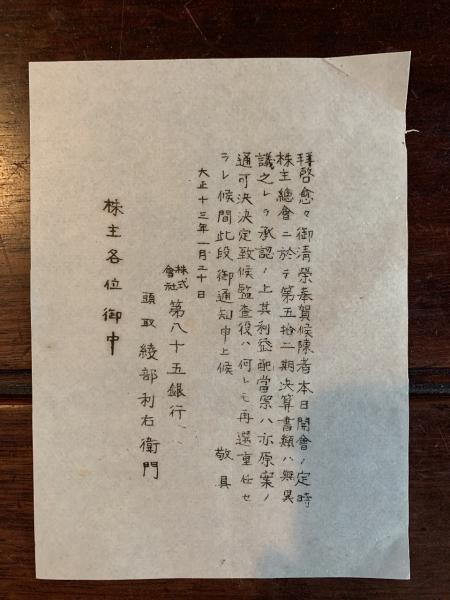 拝啓愈々御清榮奉賀候陳者本日開會ノ定時
株主總會ニ於テ第五拾二期決算書類ハ無異
議之レヲ承認ノ上其利益配當案ハ亦原案ノ
通可決決定致候監査役ハ何レモ再選重任セ
ラレ候間此段御通知申上候 敬具
大正十三年一月二十日
株式會社 第八十五銀行
頭取 綾部利右衛門
株主各位御中